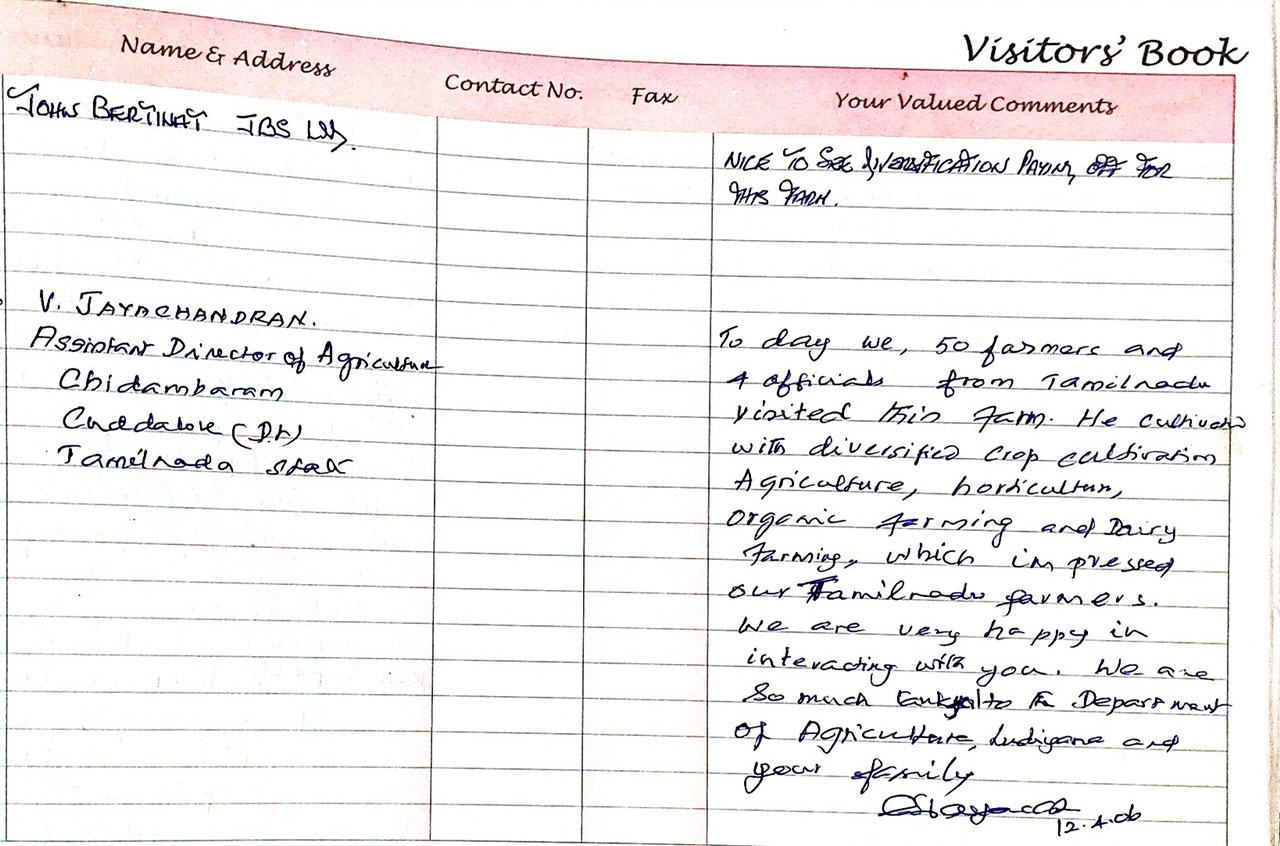 Visitors' Book
Name & Address
Contact No.
Fax
Your Valued Comments
JOHN BERTINAT JBS
NICE TO SEE DIVERSIFICATION PAYING OFF FOR
THIS FARM.
V. JAYACHANDRAN.
Assistant Director of Agriculture
Chidambaram
Cuddalore (Dt)
Tamilnadu State
To day we, 50 farmers and
4 officials from Tamilnadu
visited this farm. He cultivated
with diversified crop cultivation
Agriculture, horticulture,
organic farming and Dairy
farming, which impressed
our Tamilnadu farmers.
We are very happy in
interacting with you. We are
So much to Department
of Agriculture, Ludiyana and
your family
12.4.06